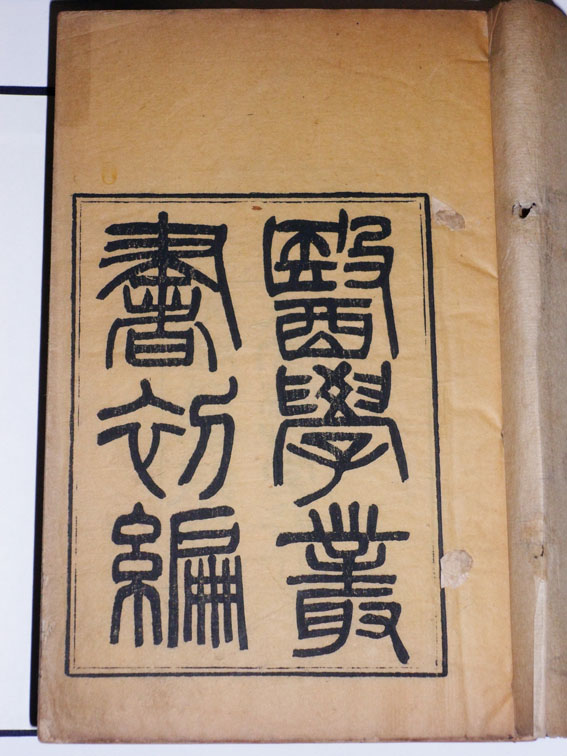 醫學叢
書初編